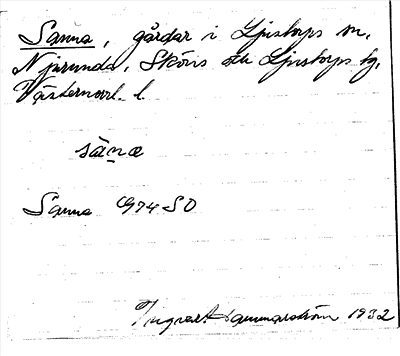 Sanna, gårdar i Ljustorps sn,
Njurunda, Sköns och Ljustorps tg,
Västernorrl. l.
sàn̠æ
Sanna 1974 SO
Ingvar Hammarström 1932